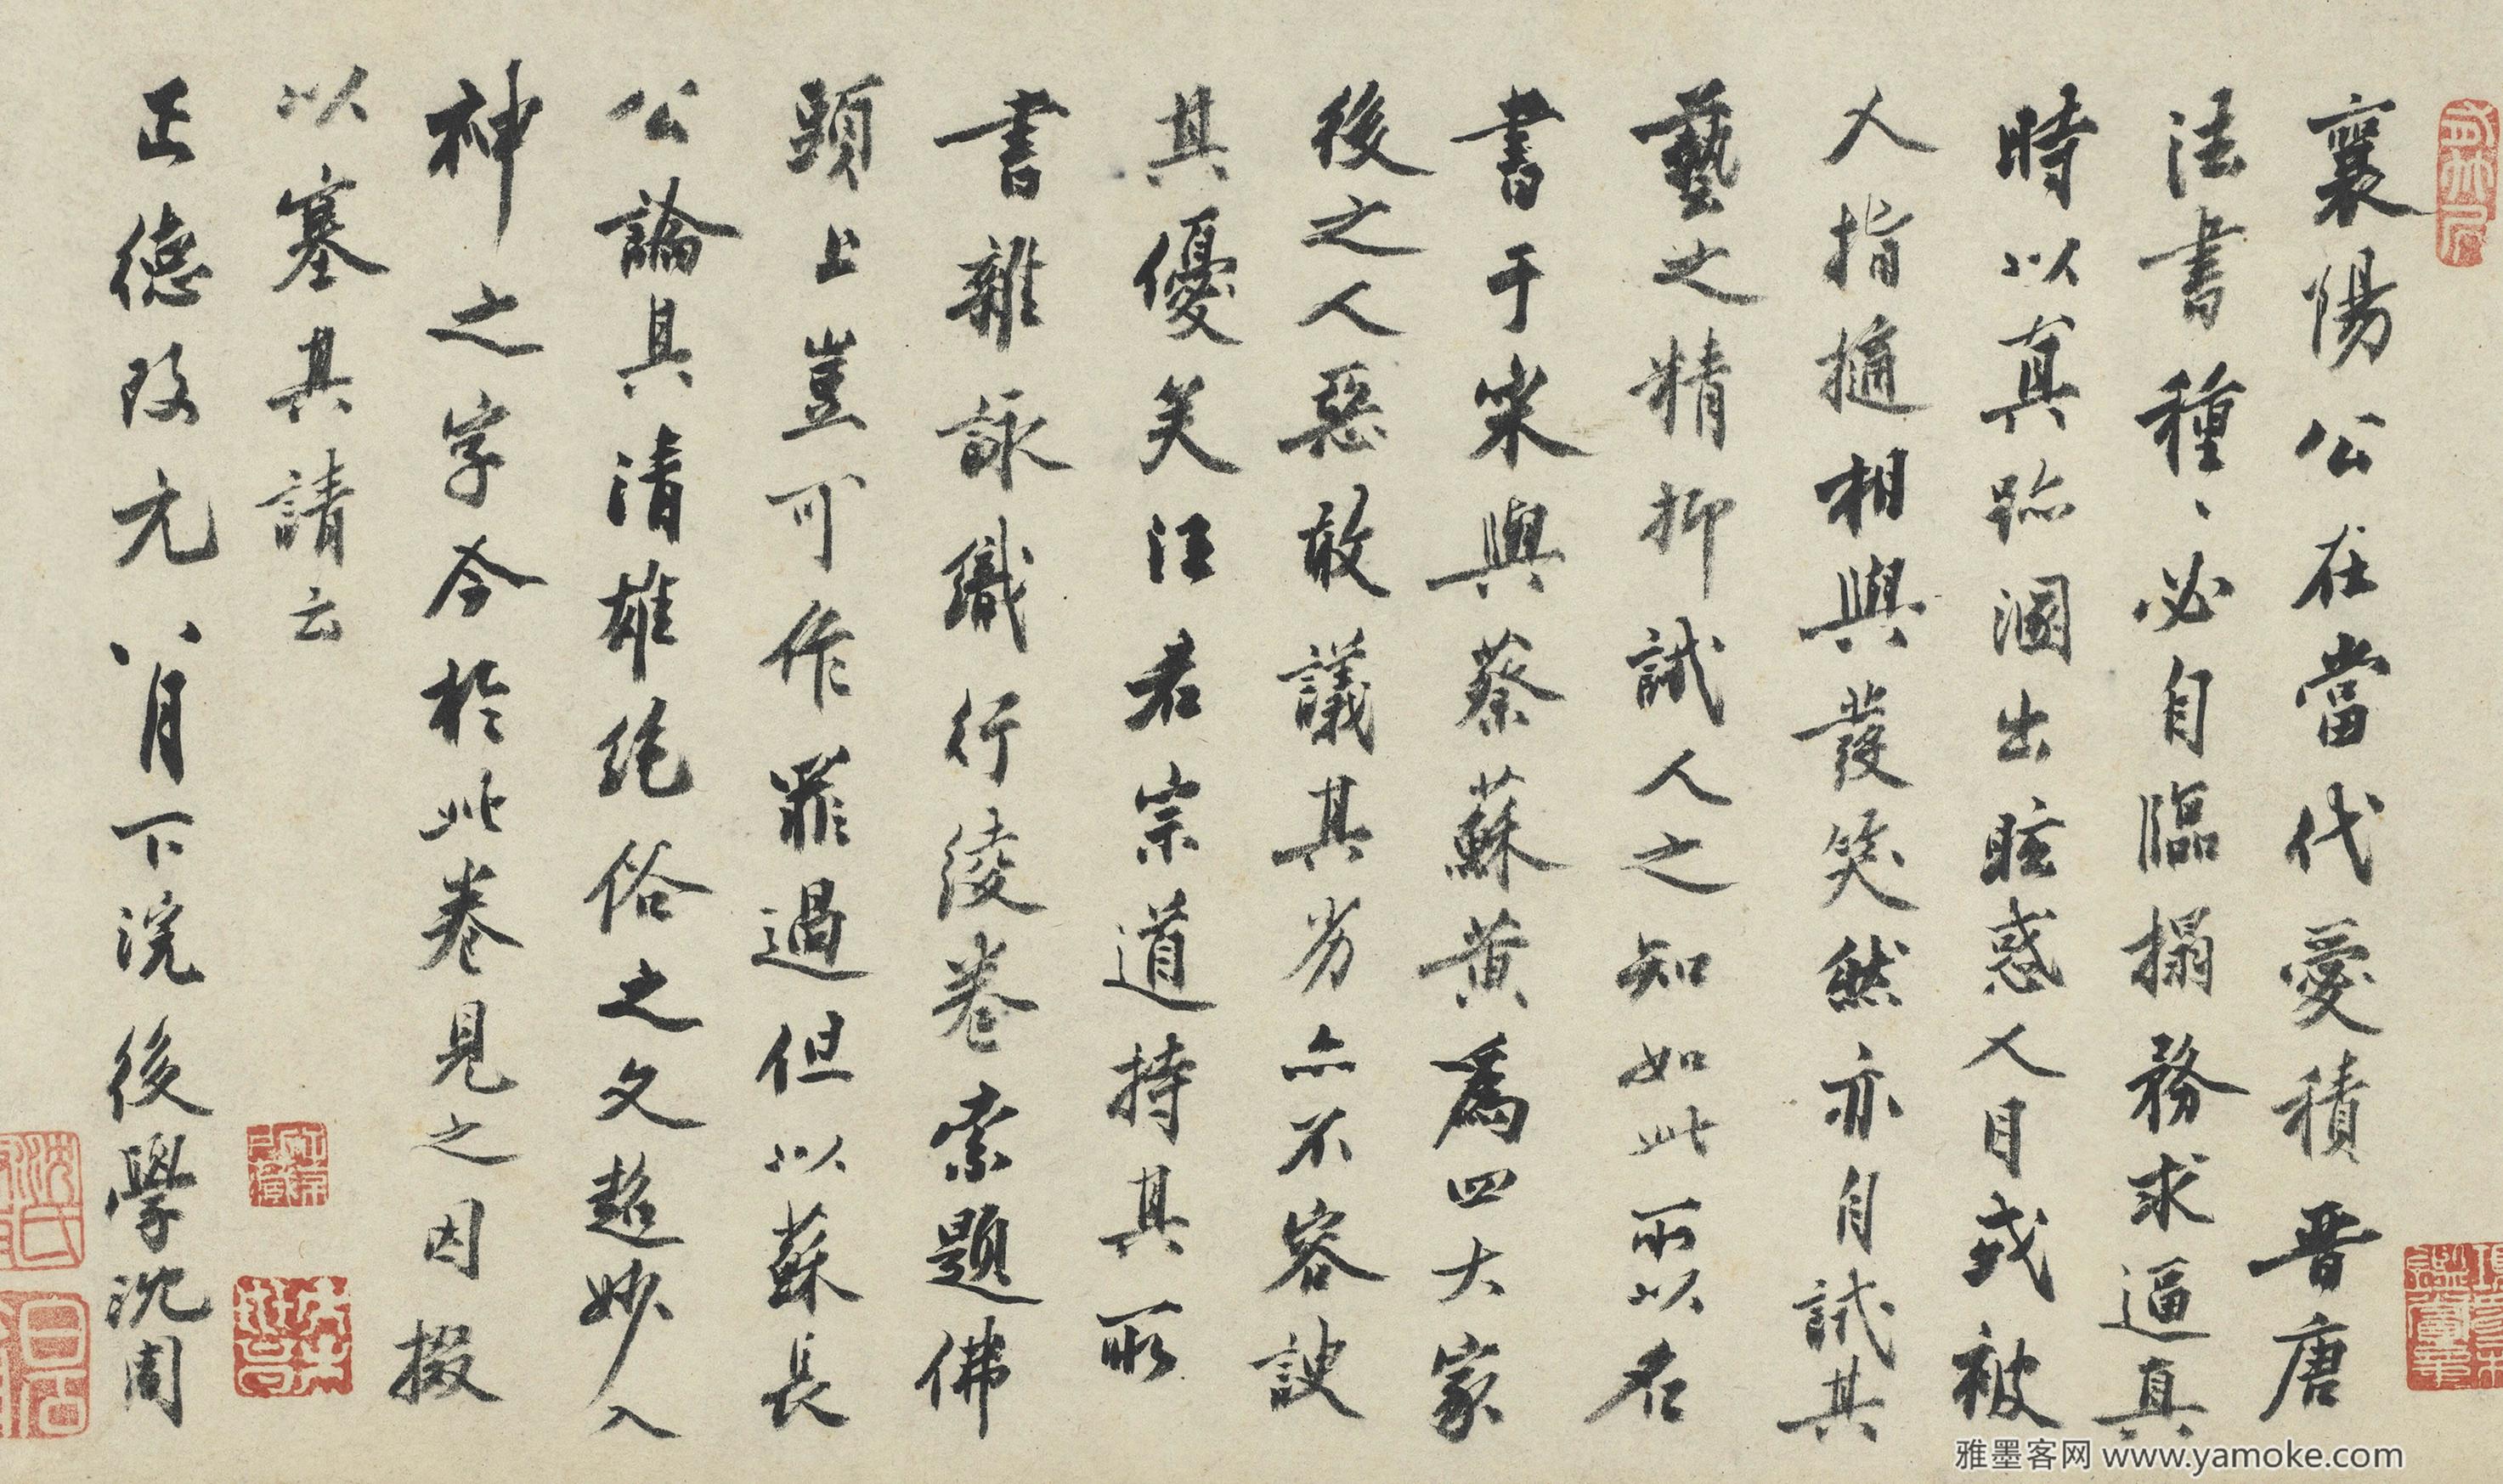 襄陽公在當代愛積晉唐
法書種、必自臨搨務求逼真
時以真跡溷出眩惑人目或被
人指擿相與發笑然亦自試其
藝之精抑試人之知如此所以名
書于宋與蔡蘇黃爲四大家
後之人惡敢議其劣亦不容諛
其優矣汪君宗道持其所
書雜詠織行綾卷索題佛
頭上豈可作罪過但以蘇長
公論具清雄絶俗之文超妙入
神之字今於此卷見之因掇
以塞其請云
正德改元八月下浣後學沈周
雅墨客网 www.yamoke.com